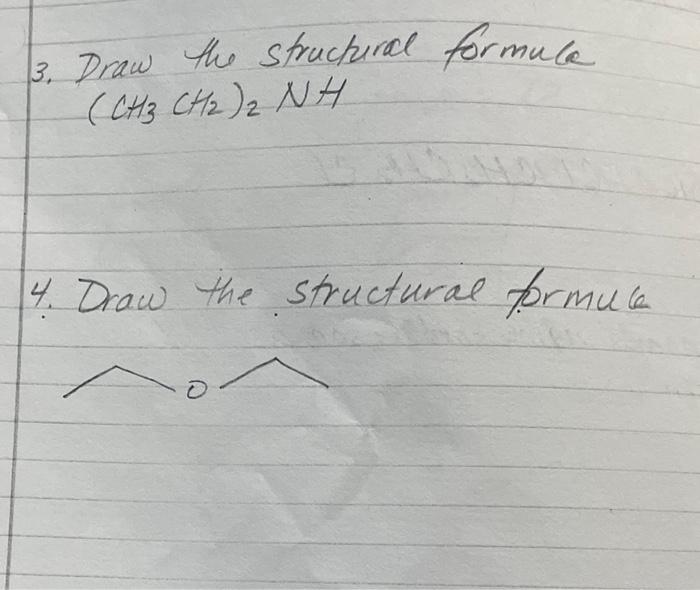 3. Draw the structural formula
(CH3 CH2)2 NH
4. Draw the structural formula
O